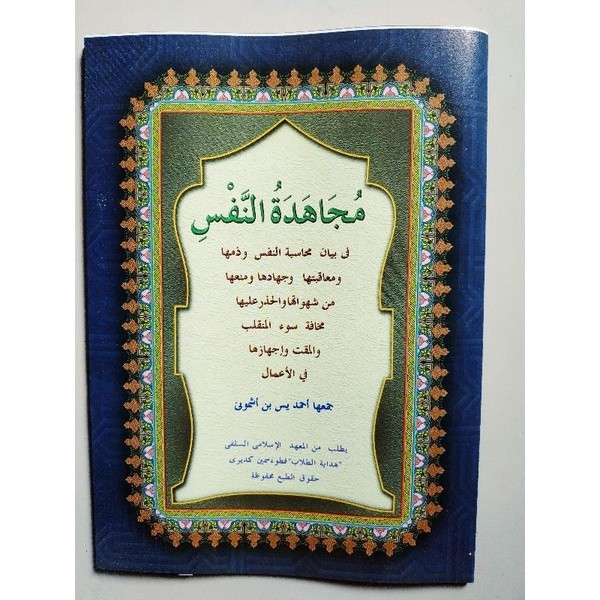 مُجَاهَدَةُ النَّفْسِ
فى بيان محاسبة النفس وذمها
ومعاقبتها وجهادها ومنعها
من شهواتها والحذر عليها
مخافة سوء المنقلب
والمقت وإجهازها
في الأعمال
جمعها أحمد يس بن أشمونى
يطلب من المعهد الإسلامى السلفى
"هداية الطلاب" فطوء سمين كديرى
حقوق الطبع محفوظة